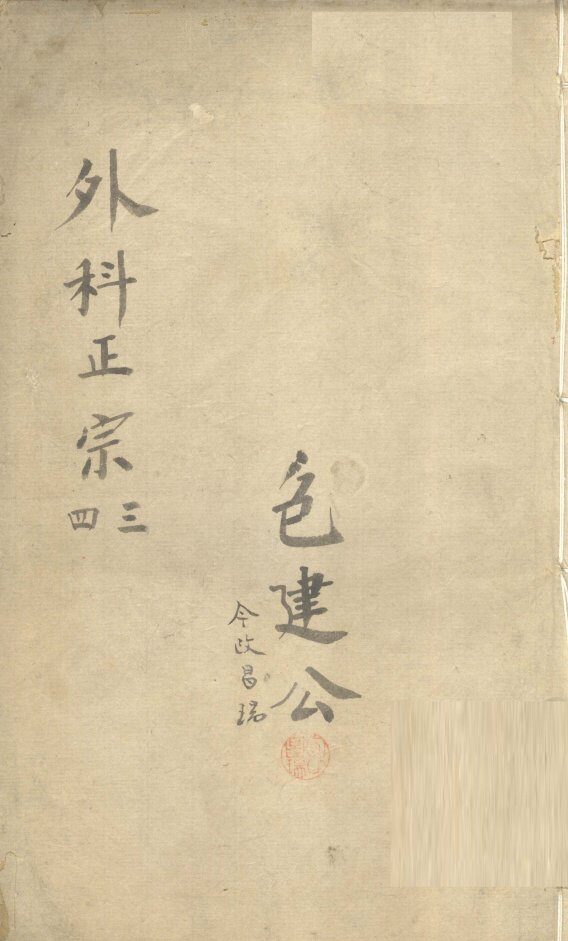 包建公
今改昌瑞
外科正宗
三
四